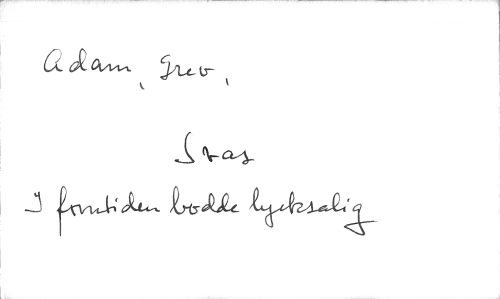 Adam, Grev,
Svar
I forntiden bodde lycksalig